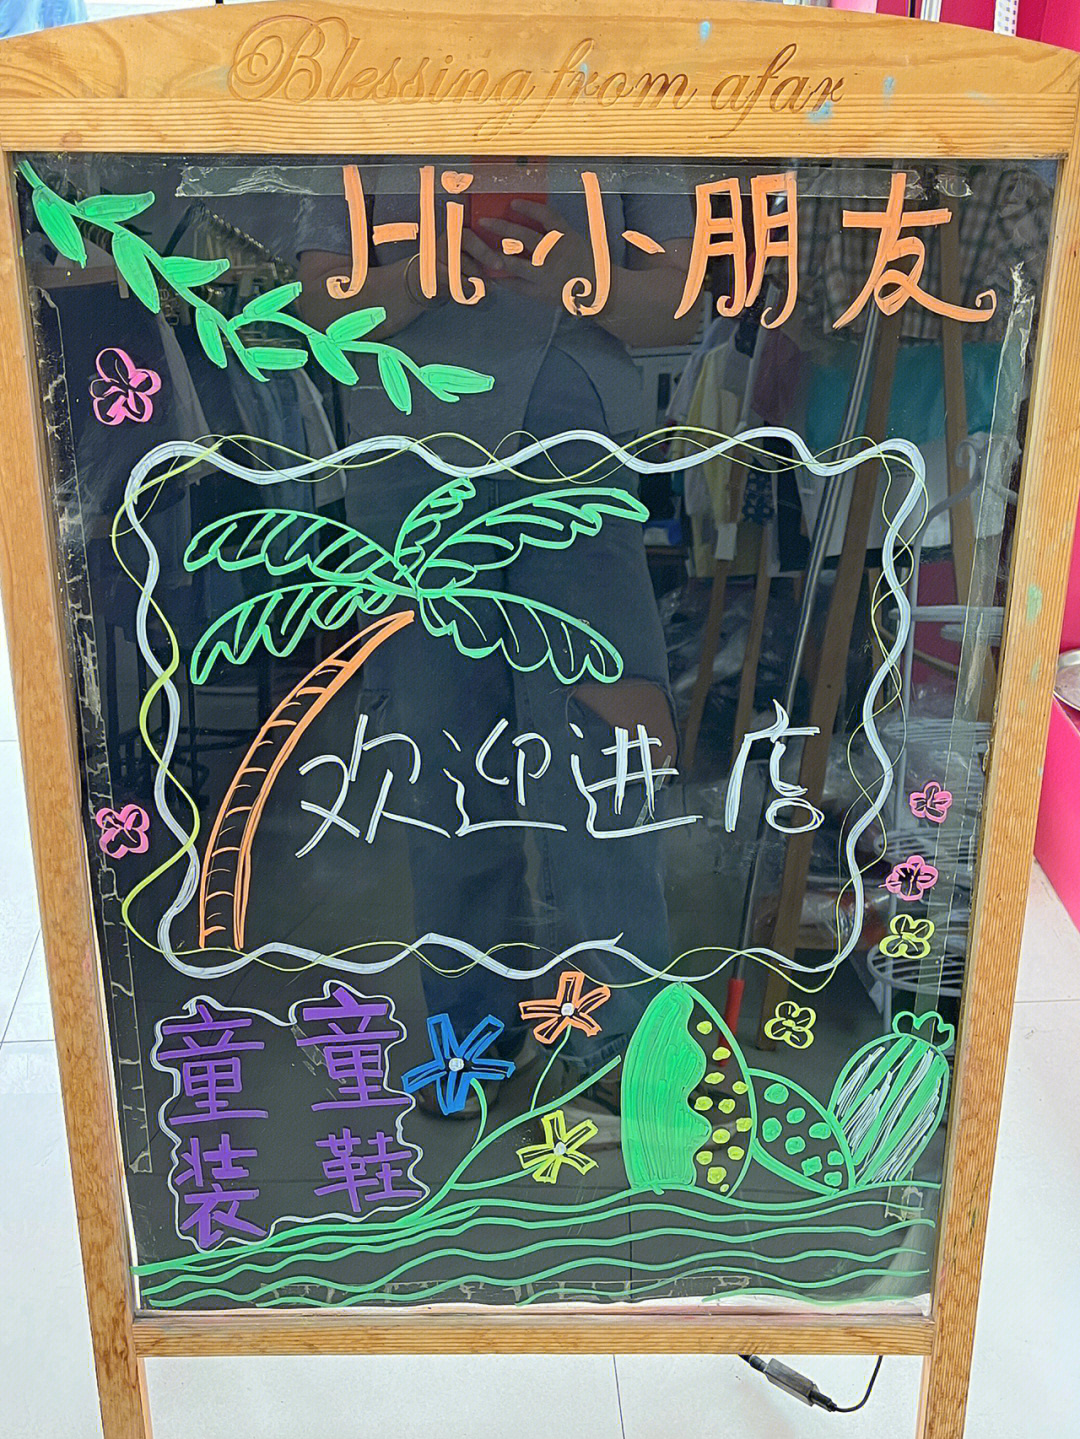 Blessing from afar
Hi·小朋友
欢迎进店
童装
童鞋